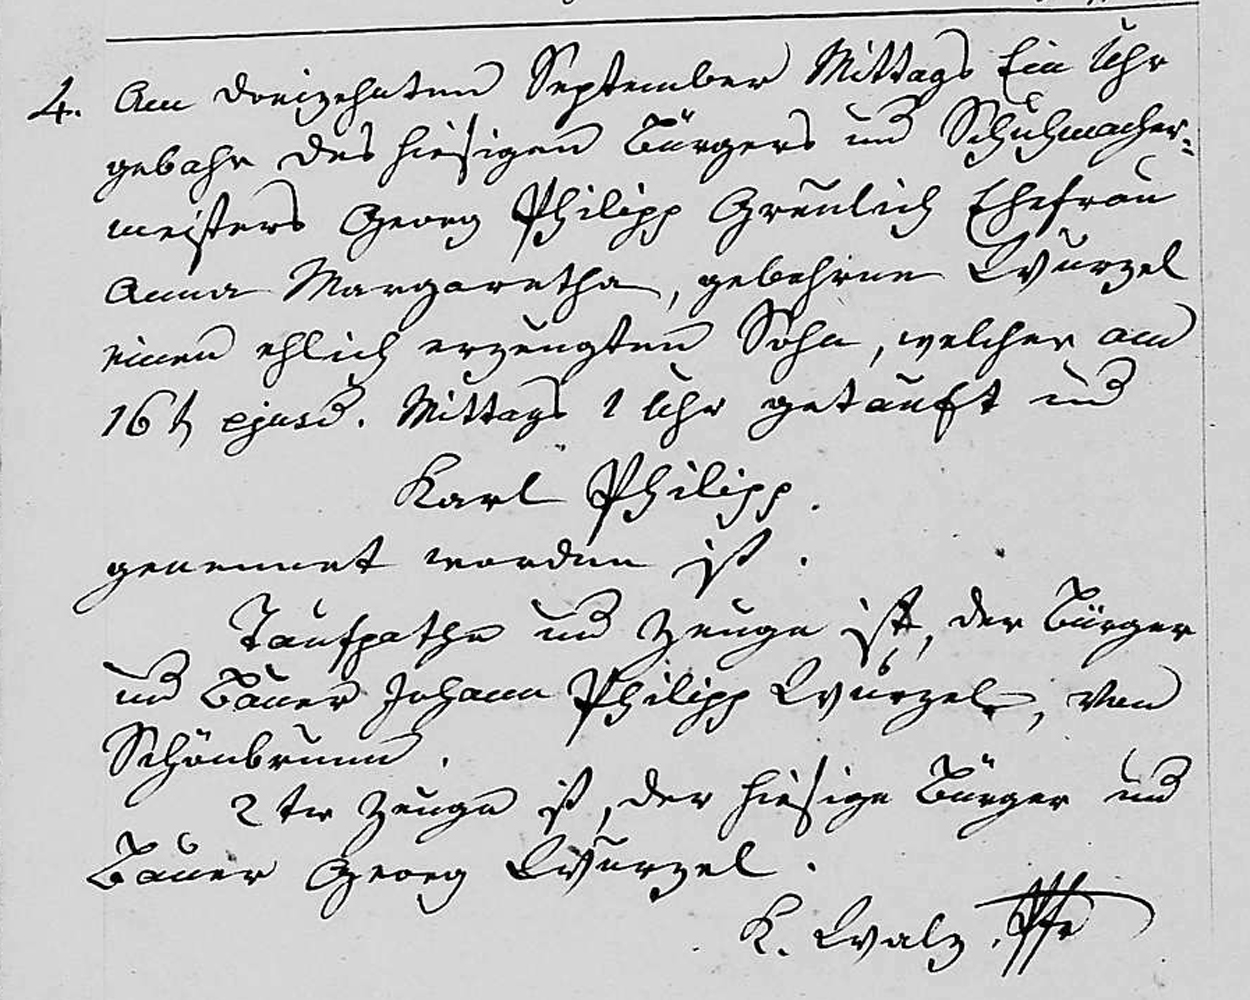 4. Am dreizehnten September Mittags Ein Uhr
gebahr des hiesigen Bürgers und Schuhmacher-
meisters Georg Philipp Greulich Ehefrau
Anna Margaretha, gebohrne Wurzel
einen ehlich erzeugten Sohn, welcher am
16t ejusd. Mittags 1 Uhr getauft und
Karl Philipp.
genennet worden ist.
Taufpathe und Zeuge ist, der Bürger
und Bauer Johann Philipp Wurzel, von
Schönbrunn.
2ter Zeuge ist, der hiesige Bürger und
Bauer Georg Wurzel.
K. Walz, Pfr